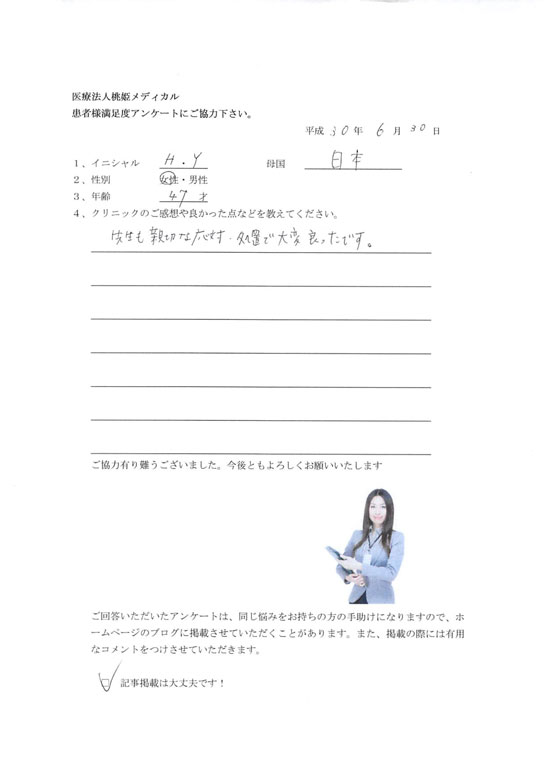 医療法人桃姫メディカル
患者様満足度アンケートにご協力下さい。
平成 30 年 6 月 30 日
1、イニシャル H・Y 母国 日本
2、性別 女性・男性
3、年齢 47 才
4、クリニックのご感想や良かった点などを教えてください。
先生も親切な応対・処置で大変良ったです。
ご協力有り難うございました。今後ともよろしくお願いいたします
ご回答いただいたアンケートは、同じ悩みをお持ちの方の手助けになりますので、ホ
ームページのブログに掲載させていただくことがあります。また、掲載の際には有用
なコメントをつけさせていただきます。
記事掲載は大丈夫です！